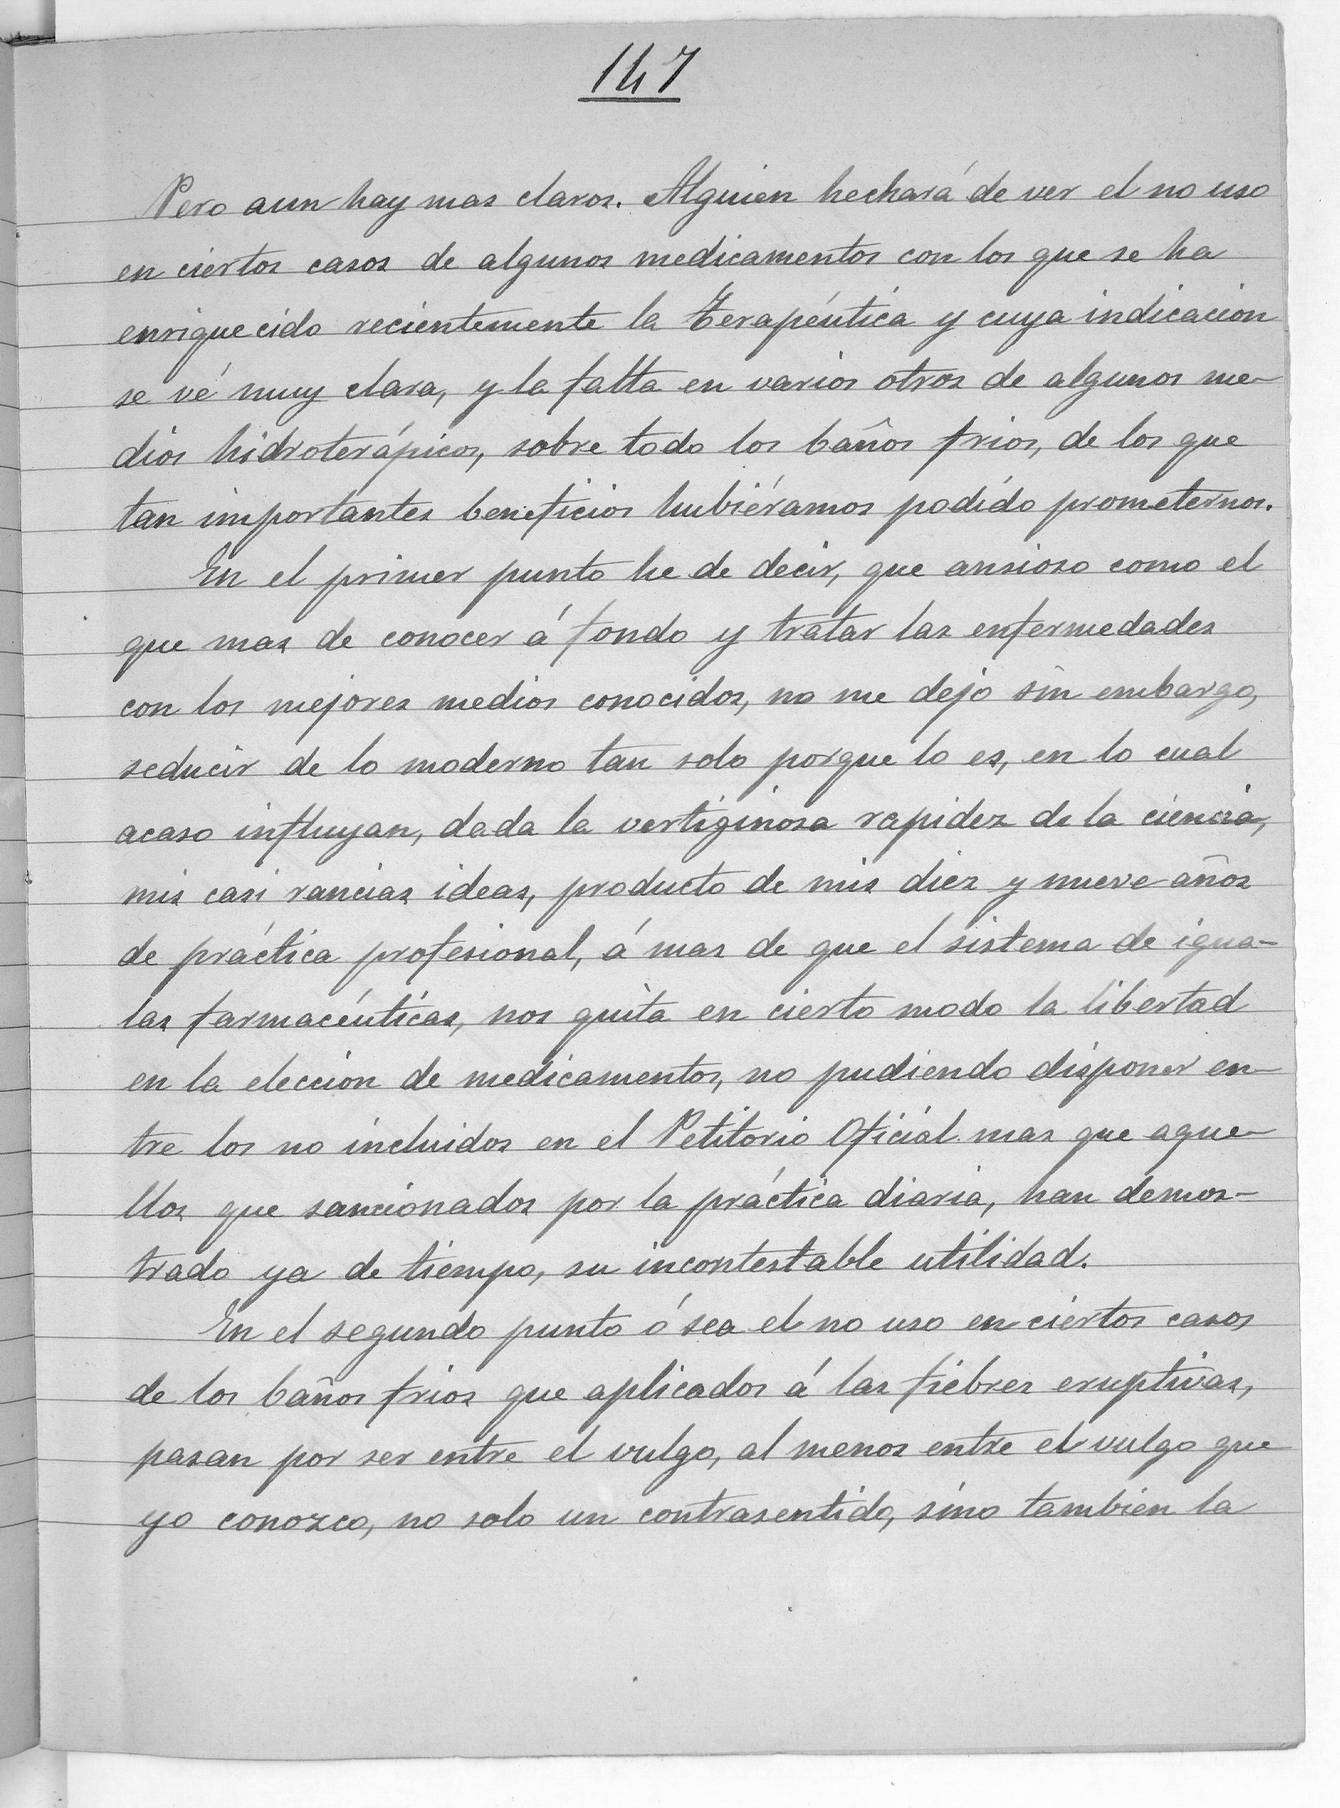 147
Pero aun hay mas claros. Alguien hechará de ver el no uso
en ciertos casos de algunos medicamentos con los que se ha
enriquecido recientemente la Terapéutica y cuya indicación
se vé muy clara, y la falta en varios otros de algunos me-
dios hidroterápicos, sobre todo los baños frios, de los que
tan importantes beneficios hubiéramos podído prometernos.
En el primer punto he de decir, que ansioso como el
que mas de conocer á fondo y tratar las enfermedades
con los mejores medios conocidos, no me dejo sin embargo,
seducir de lo moderno tan solo porque lo es, en lo cual
acaso influyan, dada la vertiginosa rapidez de la ciencia,
mis casi rancias ideas, producto de mis diez y nueve años
de práctica profesional, á mas de que el sistema de igua-
las farmacéuticas, nos quita en cierto modo la libertad
en la elección de medicamentos, no pudiendo disponer en-
tre los no incluidos en el Petitorio Oficial mas que aque-
llos que sancionados por la práctica diaria, han demos-
trado ya de tiempo, su incontestable utilidad.
En el segundo punto ó sea el no uso en ciertos casos
de los baños frios que aplicados á las fiebres eruptivas,
pasan por ser entre el vulgo, al menos entre el vulgo que
yo conozco, no solo un contrasentido, sino tambien la